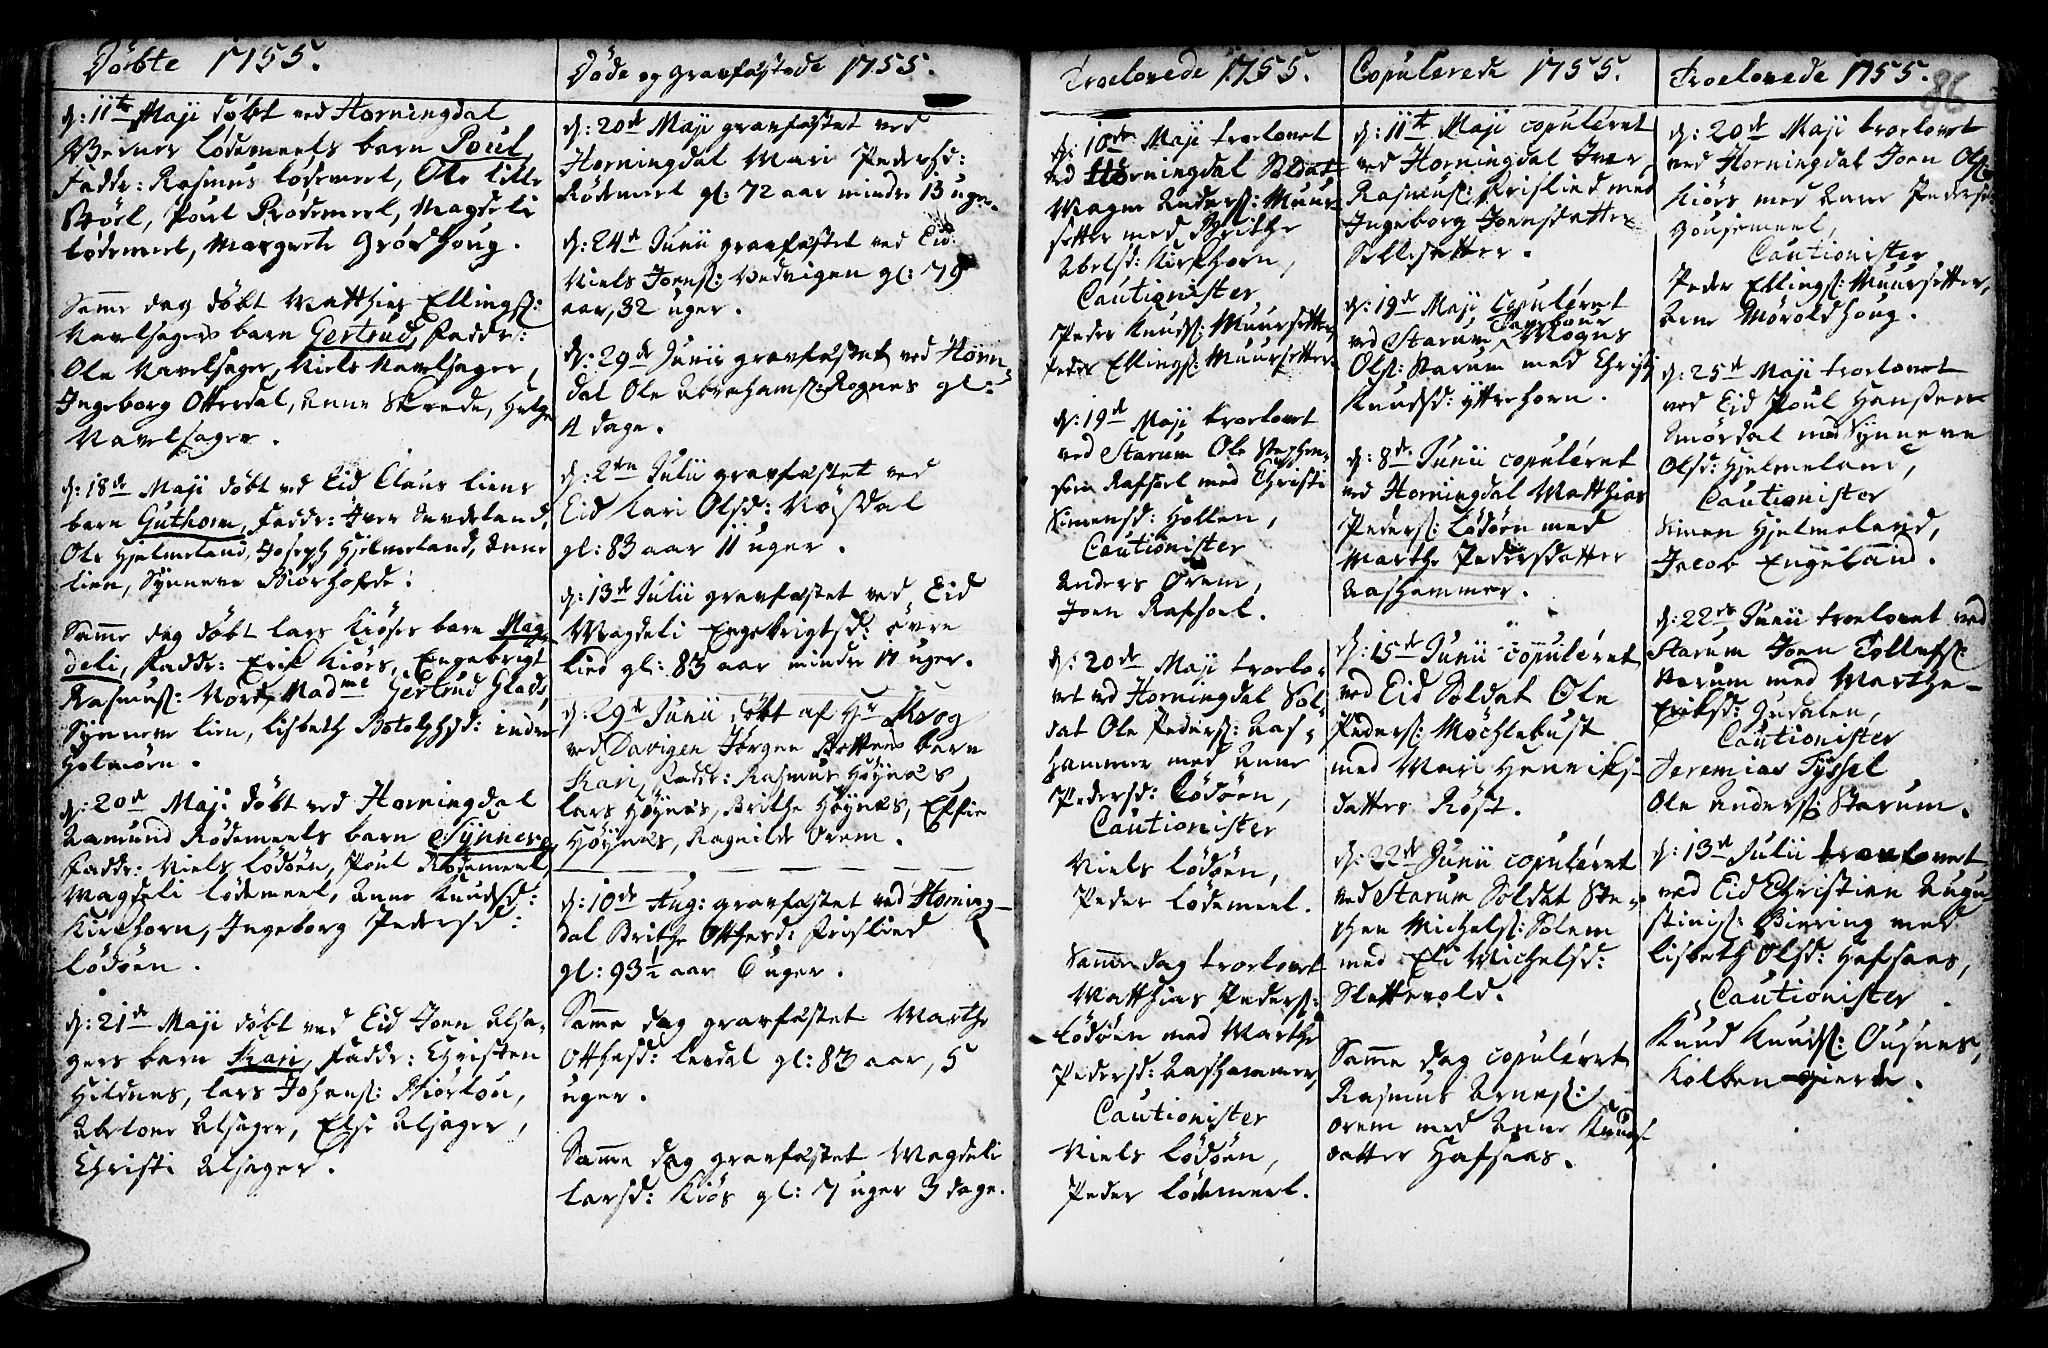 Döbte 1755.
d: 11te Maji döbt ved Horningdal
Berner Lödemeels barn Poul,
Faddr: Rasmus Lödemeel, Ole Lille
Stöel, Poul Rödemeel, Magdeli
Lödemeel, Margrete Grödhoug.
Samme dag döbt Matthias Ellings:
Navelsagers barn Gertrud, Faddr:
Ole Navelsager, Niels Navelsager,
Ingeborg Otterdal, Anne Skrede, Helge
Navelsager.
d: 18de Maji döbt ved Eid Claus Liens
barn Guthorm, Faddr: Iver Sundeland,
Ole Hjelmeland, Joseph Hjelmeland, Anne
Lien, Synneve Biörhofde:
Samme dag döbt Lars Kiöses barn Mag
deli, Faddr: Erik Kiörs, Engebrigt
Rasmus: Nord, Madme Gertrud Glads,
Synneve Lien, Lisbeth Botolphsd: indre
Holmöen.
d: 20de Maji döbt ved Horningdal
Aamund Rödemeels barn Synneve,
Faddr: Niels Lödöen, Poul Rödemeel,
Magdeli Lödemeel, Anne Knudsd:
Kirkhorn, Ingeborg Pedersd:
Lödöen.
d: 21de Maji döbt ved Eid Joen Alsa-
gers barn Kari, Faddr: Christen
Hildnes, Lars Johans:
Abelone Alsager, Else Alsager,
Christi Alsager.
Döde og Gravfæstede 1755.
d: 20de Maji gravfæstet ved
Horningdal Mari Pedersd:
Rödemeel gl: 72 aar mindre 13 uger.
d: 24de Junii gravfæstet ved Eid
Niels Joens: Nedrigen gl: 79
aar, 32 uger.
d: 29de Junii gravfæstet ved Horn-
dal Ole Abrahams: Rognes gl:
4 dage.
d: 2den Julii gravfæstet ved
Eid Kari Olsd: Nösdal
gl: 83 aar 11 uger.
d: 13de Julii gravfæstet ved Eid
Magdeli Engebrigtsd: övre
Lied gl: 83 aar mindre 11 uger.
d: 29de Junii döbt af Hr Skoog
ved Davigen Jörgen barn
Kari, Faddr: Rasmus Höynes,
Lars Höynes, Brithe Höynes, Elsie
Höynes, Ragnilde Orem.
d: 10de Aug: gravfæstet ved Horning-
dal Brithe Ottesd: Frislied
gl: 93½ aar 6 uger.
Samme dag gravfæstet Marthe
Ottesd: Leedal gl: 83 aar, 5
uger.
Samme dag gravfæstet Magdeli
Larsd: Kiös gl: 7 uger 3 dage.
Troelovede 1755.
d: 10de Maji troelovet
ved Horningdal Soldat
Magne Anders: Muur-
setter med Brithe
Abelsd: Kirkhorn,
Cautionister
Peder Knuds: Muursetter,
Peder Ellings: Muursetter.
d: 19de Maji troelovet
ved Starum Ole Stephen-
sen Rafteel med Christi
Simensd: Hollen,
Cautionister
Anders Orem,
Joen Rafteel.
d: 20de Maji troelo-
vet ved Horningdal Sol-
dat Ole Peders: Aas-
hammer med Anne
Pedersd: Lödöen,
Cautionister
Niels Lödöen,
Peder Lödemeel.
Samme dag troelovet
Matthias Peders:
Lödöen med Marthe
Pedersd: Aashammer,
Cautionister
Niels Lödöen,
Peder Lödemeel.
Copulerede 1755.
d: 11te Maji copuléret
ved Horningdal Iver
Rasmus: Frislied med
Ingeborg Joensdatter
Sillesetter.
d: 19de Maji copuléret
ved Starum Tambour Mogns
Ols: Starum med Christi
Knudsd: yttrehorn.
d: 8de Junii copuléret
ved Horningdal Matthias
Peders: Lödöen med
Marthe Pedersdatter
Aashammer.
d: 15de Junii copuléret
ved Eid Soldat Ole
Peders: Möchlebust
med Mari Henrichs-
datter Röst.
d: 22de Junii copuléret
ved Starum Soldat Ste-
phen Michels: Solem
med Eli Michelsd:
Slettevold.
Samme dag copuléret
Rasmus Arnes:
Orem med Anne Knuds-
datter Hafsaas.
Troelovede 1755.
86
d: 20de Maji troelovet
ved Horningdal Joen Ols:
Kiörs med Anne Pedersd:
Housemeel,
Cautionister
Peder Ellings: Muursetter,
Arne Moroldhoug.
d: 25de Maji troelovet
ved Eid Poul Hansen
Smördal med Synneve
Olsd: Hjelmeland,
Cautionister
Simen Hjelmeland,
Jacob Engeland.
d: 22de Junii troelovet ved
Starum Joen Tollefs:
Starum med Marthe
Eriksd: Hundalen,
Cautionister
Jeremias Tyssel
Ole Anders: Starum.
d: 13de Julii troelovet
ved Eid Christien Augu-
stinis: Biering med
Lisbeth Olsd: Hafsaas,
Cautionister
Knud Knuds: Ousnes,
Kolben gierde.